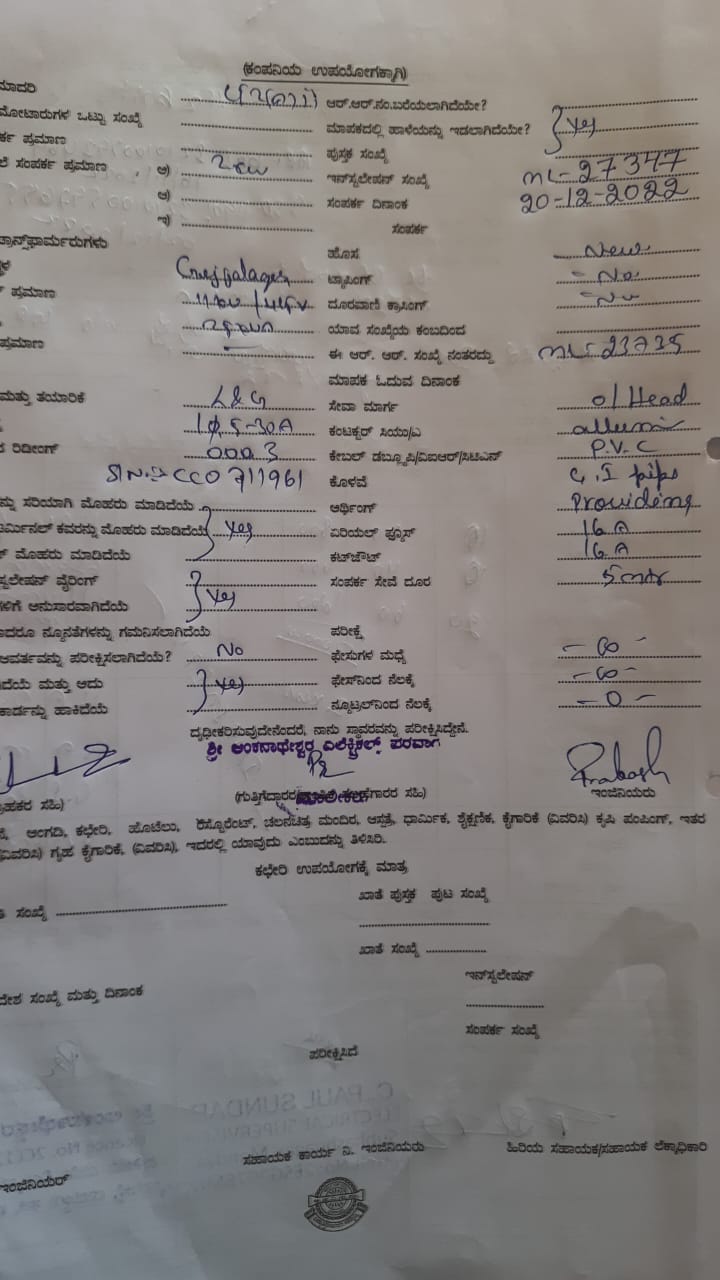 (ಕಂಪನಿಯ ಉಪಯೋಗಕ್ಕಾಗಿ)
ಮಾದರಿ ಆರ್.ಆರ್.ನಂ.ಬರೆಯಲಾಗಿದೆಯೇ?
ಮೋಟಾರುಗಳ ಒಟ್ಟು ಸಂಖ್ಯೆ ಮಾಪಕದಲ್ಲಿ ಹಾಳೆಯನ್ನು ಇಡಲಾಗಿದೆಯೇ? Yes
ರ್ಕ ಪ್ರಮಾಣ ಪುಸ್ತಕ ಸಂಖ್ಯೆ
ಲೆ ಸಂಪರ್ಕ ಪ್ರಮಾಣ ಅ) 2kw ಇನ್‌ಸ್ಟಲೇಷನ್ ಸಂಖ್ಯೆ ML-27347
ಆ) ಸಂಪರ್ಕ ದಿನಾಂಕ 20-12-2022
ಇ) ಸಂಪರ್ಕ
ತ್ರಾನ್ಸ್‌ಫಾರ್ಮರುಗಳು ಹೊಸ New
ಟ್ಯಾಪಿಂಗ್ - No
ಪ್ರಮಾಣ ದೂರವಾಣಿ ಕ್ರಾಸಿಂಗ್ - No
25 KVA ಯಾವ ಸಂಖ್ಯೆಯ ಕಂಬದಿಂದ
ಪ್ರಮಾಣ - ಈ ಆರ್. ಆರ್. ಸಂಖ್ಯೆ ನಂತರದ್ದು ML-23735
ಮಾಪಕ ಓದುವ ದಿನಾಂಕ
ಮತ್ತು ತಯಾರಿಕೆ L&G ಸೇವಾ ಮಾರ್ಗ o/Head
1ϕ, 5-30A ಕಂಟಕ್ಟರ್ ಸಿಯು/ಎ
ರಿಡೀಂಗ್ 0003 ಕೇಬಲ್ ಡಬ್ಲ್ಯೂಪಿ/ವಿಐಆರ್/ಸಿಟಿಎಸ್ P.V.C
CC0711961 ಕೊಳವೆ G.I pipe
ನ್ನು ಸರಿಯಾಗಿ ಮೊಹರು ಮಾಡಿದೆಯೆ ಅರ್ಥಿಂಗ್ Providing
ಟರ್ಮಿನಲ್ ಕವರನ್ನು ಮೊಹರು ಮಾಡಿದೆಯೆ Yes ಏರಿಯಲ್ ಫ್ಯೂಸ್ 16 A
ಮೊಹರು ಮಾಡಿದೆಯೆ ಕಟ್‌ಔಟ್ 16 A
ಸ್ಟಲೇಷನ್ ವೈರಿಂಗ್ ಸಂಪರ್ಕ ಸೇವೆ ದೂರ 5 mtr
ಗಳಿಗೆ ಅನುಸಾರವಾಗಿದೆಯೆ Yes
ದರೂ ನ್ಯೂನತೆಗಳನ್ನು ಗಮನಿಸಲಾಗಿದೆಯೆ ಪರೀಕ್ಷೆ
ಆವರ್ತವನ್ನು ಪರೀಕ್ಷಿಸಲಾಗಿದೆಯೆ? No ಫೇಸುಗಳ ಮಧ್ಯೆ - ∞ -
ದೆಯೆ ಮತ್ತು ಅದು Yes ಫೇಸ್‌ನಿಂದ ನೆಲಕ್ಕೆ - ∞ -
ಕಾರ್ಡನ್ನು ಹಾಕಿದೆಯೆ ನ್ಯೂಟ್ರಲ್‌ನಿಂದ ನೆಲಕ್ಕೆ - 0 -
ದೃಢೀಕರಿಸುವುದೇನೆಂದರೆ, ನಾನು ಸ್ಥಾವರವನ್ನು ಪರೀಕ್ಷಿಸಿದ್ದೇನೆ.
ಶ್ರೀ ಅಂಕನಾಥೇಶ್ವರ ಎಲೆಕ್ಟ್ರಿಕಲ್ಸ್
Prakash
ಗ್ರಾಹಕರ ಸಹಿ) (ಗುತ್ತಿಗೆದಾರರ ಸಹಿ) ಇಂಜಿನಿಯರು
ಮಾಲೀಕರು
ಅಂಗಡಿ, ಕಛೇರಿ, ಹೊಟೆಲು, ರೆಸ್ಟೋರೆಂಟ್, ಚಲನಚಿತ್ರ ಮಂದಿರ, ಆಸ್ಪತ್ರೆ, ಧಾರ್ಮಿಕ, ಶೈಕ್ಷಣಿಕ, ಕೈಗಾರಿಕೆ (ವಿವರಿಸಿ) ಕೃಷಿ ಪಂಪಿಂಗ್, ಇತರ
(ವಿವರಿಸಿ) ಗೃಹ ಕೈಗಾರಿಕೆ, (ವಿವರಿಸಿ), ಇದರಲ್ಲಿ ಯಾವುದು ಎಂಬುದನ್ನು ತಿಳಿಸಿರಿ.
ಕಛೇರಿ ಉಪಯೋಗಕ್ಕೆ ಮಾತ್ರ
ಖಾತೆ ಪುಸ್ತಕ ಪುಟ ಸಂಖ್ಯೆ
ಸಂಖ್ಯೆ
ಖಾತೆ ಸಂಖ್ಯೆ
ಇನ್‌ಸ್ಟಲೇಷನ್
ದೇಶ ಸಂಖ್ಯೆ ಮತ್ತು ದಿನಾಂಕ
ಸಂಪರ್ಕ ಸಂಖ್ಯೆ
ಪರೀಕ್ಷಿಸಿದೆ
ಸಹಾಯಕ ಕಾರ್ಯ ನಿ. ಇಂಜಿನಿಯರು ಹಿರಿಯ ಸಹಾಯಕ/ಸಹಾಯಕ ಲೆಕ್ಕಾಧಿಕಾರಿ
ಇಂಜಿನಿಯರ್